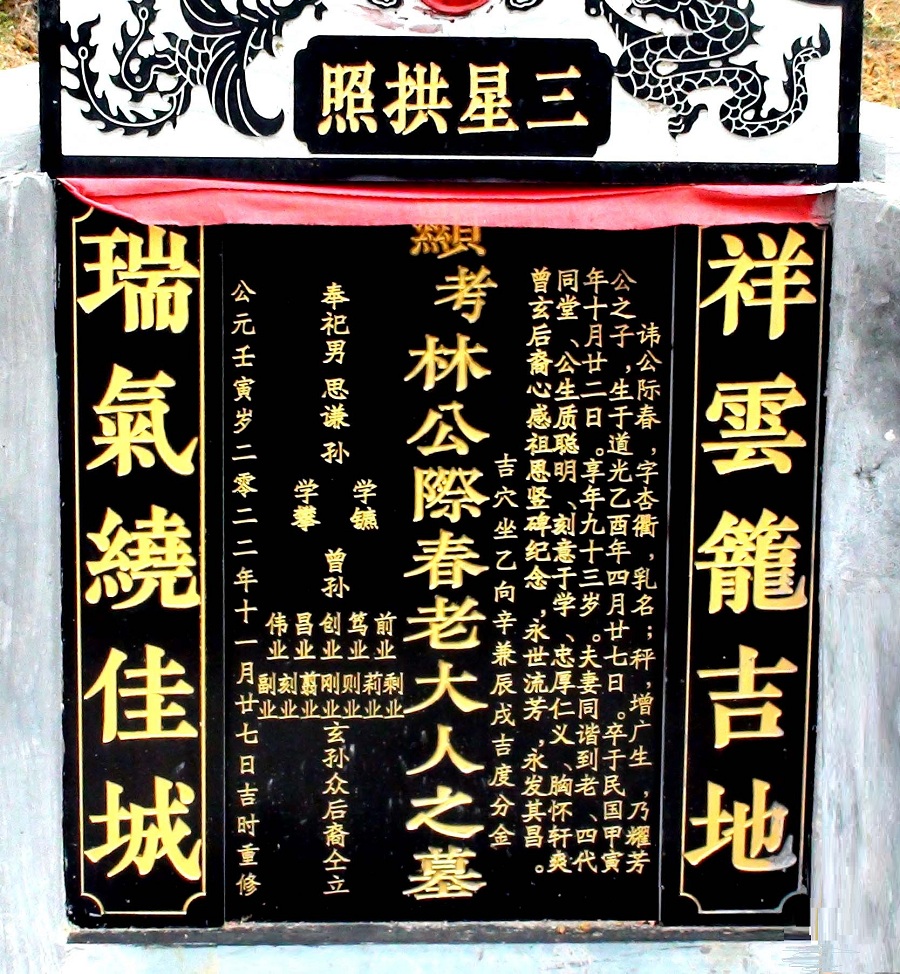 三星拱照
祥雲籠吉地
讳公际春，字杏衢，乳名；秤，增广生，乃耀芳
公之子，生于道光乙酉年四月廿七日。卒于民国甲寅
年十月廿二日。享年九十三岁。夫妻同谐到老、四代
同堂、公生质聪明、刻意于学、忠厚仁义、胸怀轩爽
曾玄后裔心感祖恩竖碑纪念，永世流芳，永发其昌。
吉穴坐乙向辛兼辰戌吉度分金
顯考林公際春老大人之墓
奉祀男思谦孙
学镳
学攀
曾孙
前业
笃业
创业
昌业
伟业
剩业
莉业
则业
刚业
翦业
刻业
副业
玄孙众后裔仝立
公元壬寅岁二零二二年十一月廿七日吉时重修
瑞氣繞佳城